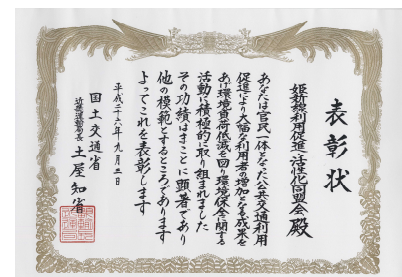 表彰状
姫新線利用促進・活性化同盟会殿
あなたは官民一体となった公共交通利用
促進により大幅な利用者の増加となる成果を
あげ環境負荷低減を図り環境保全に関する
活動に積極的に取り組まれました
その功績はまことに顕著であり
他の模範とするところであります
よってこれを表彰します
平成二十六年九月二日
国土交通省
近畿運輸局長 土屋知省